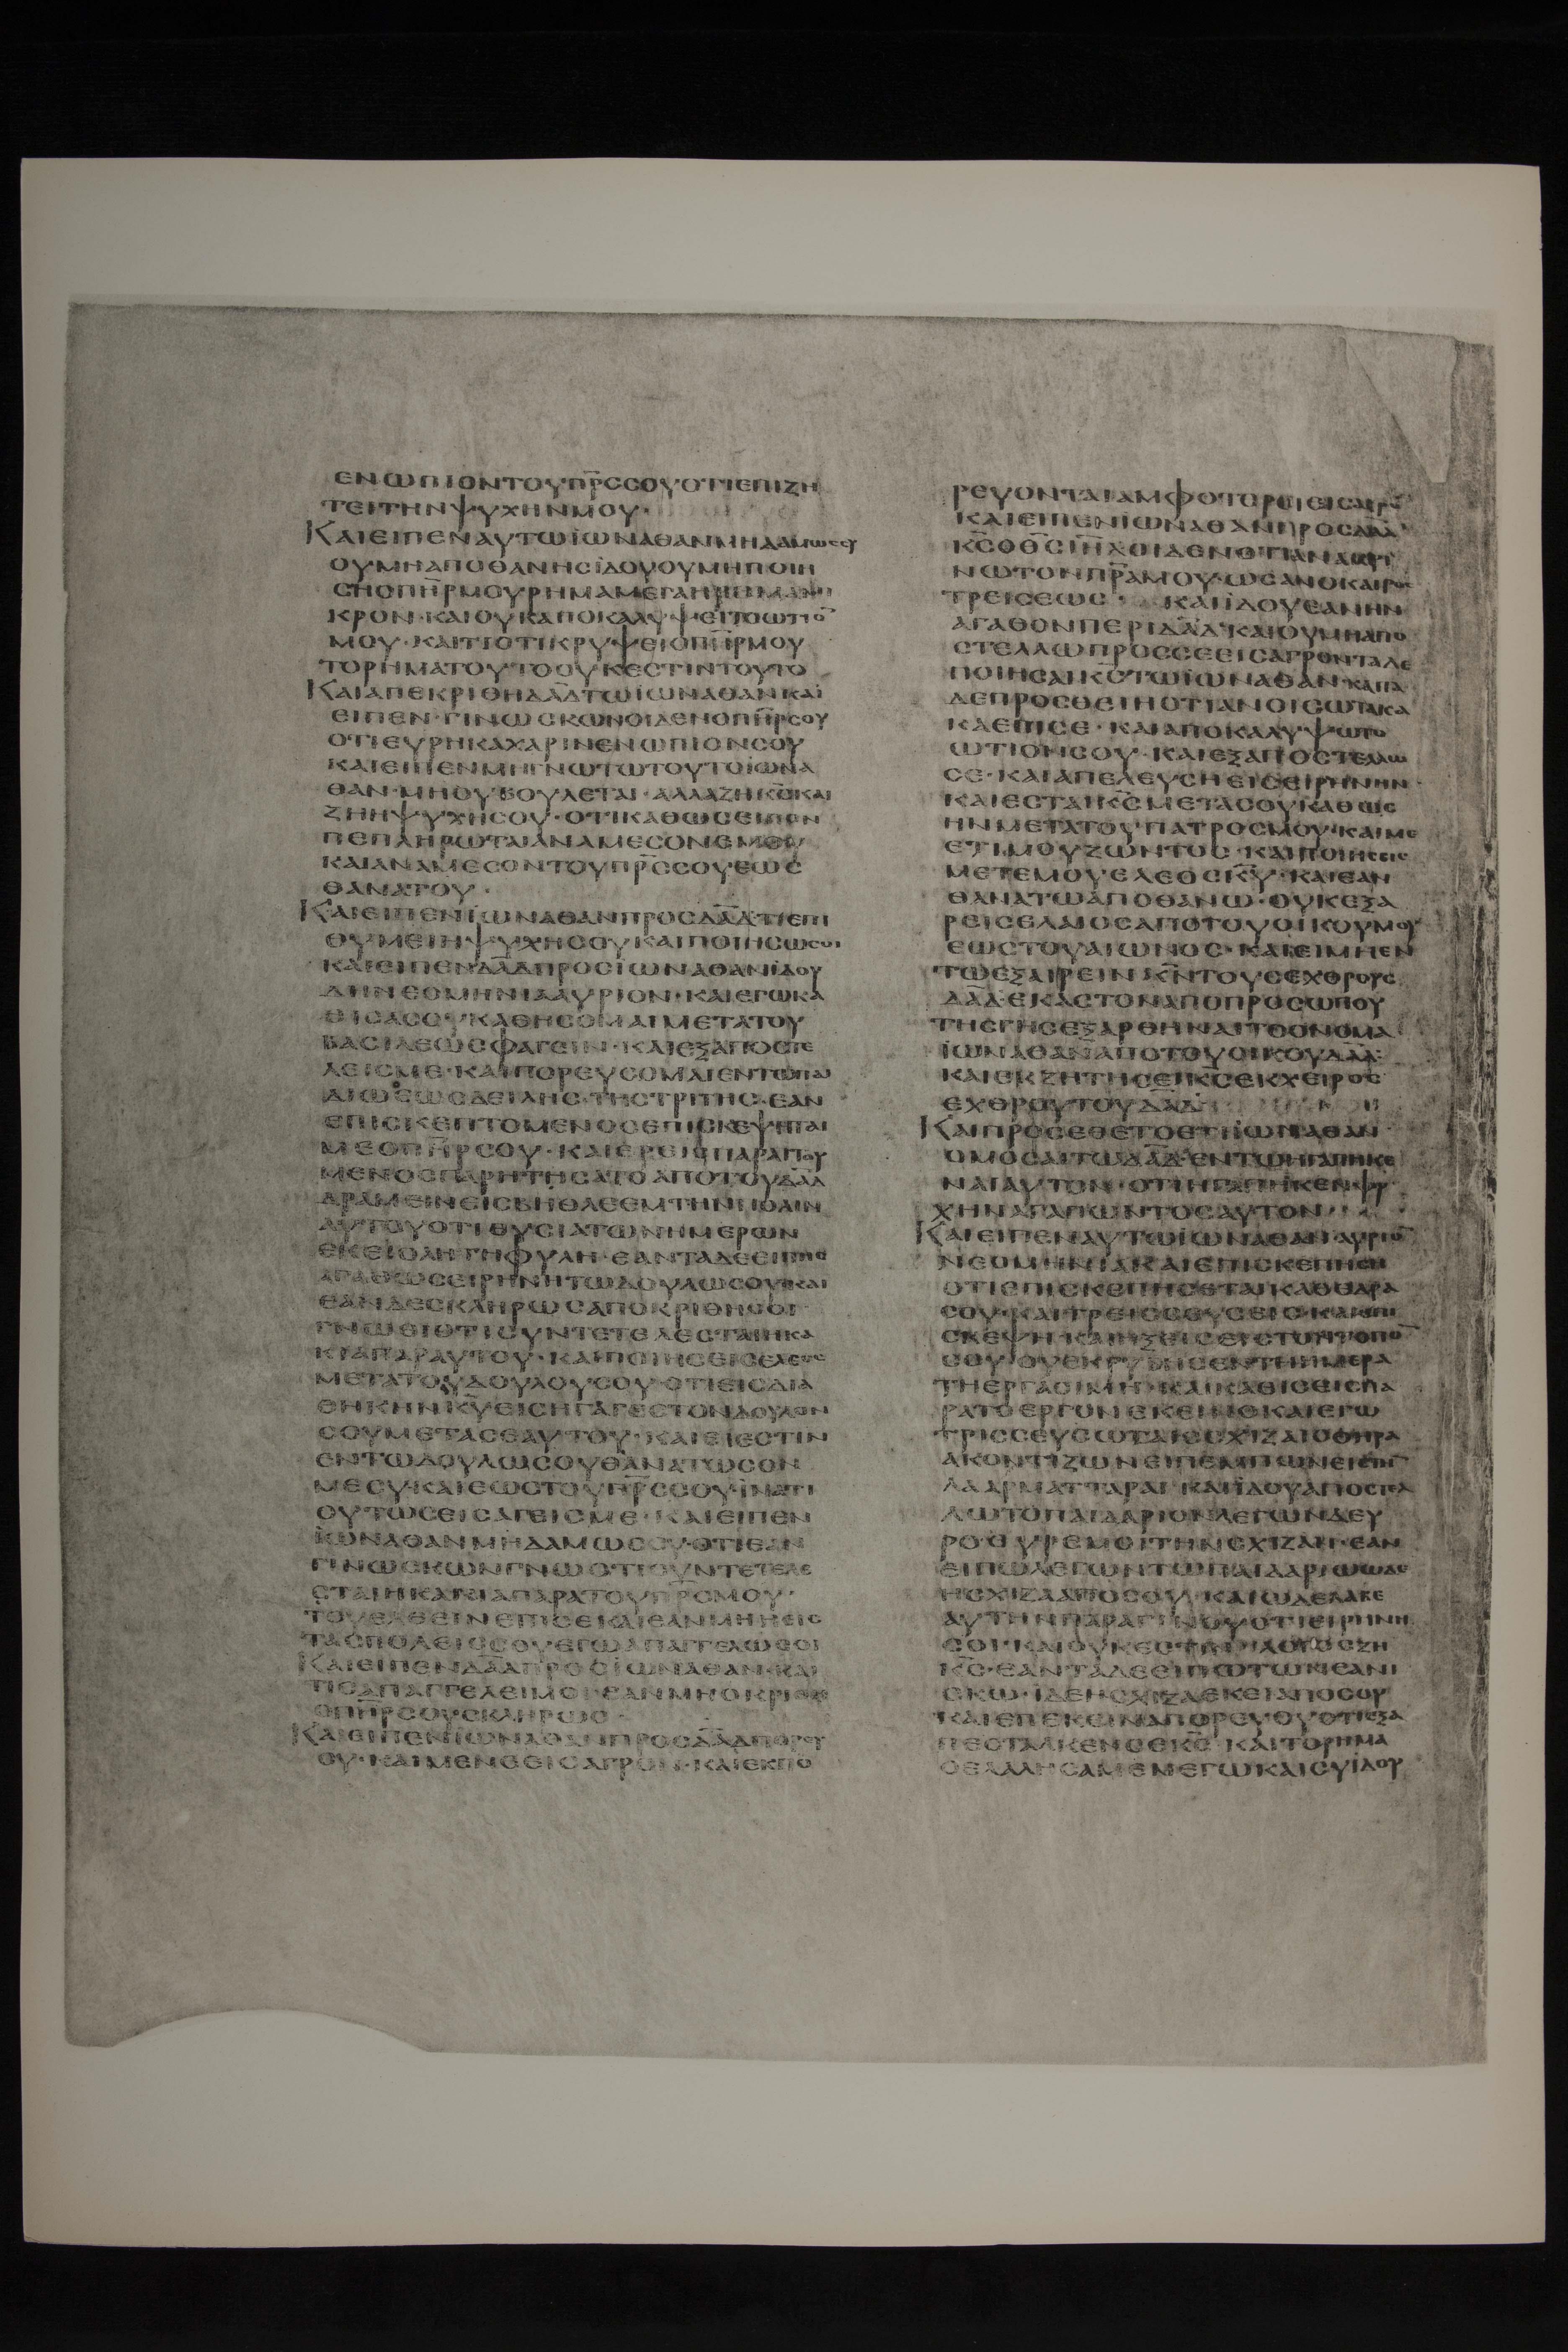 ΕΝΩΠΙΟΝΤΟΥΠ̅Ρ̅ССΟΥΟΤΙΕΠΙΖΗ
ΤΕΙΤΗΝΨΥΧΗΝΜΟΥ·
ΚΑΙΕΙΠΕΝΑΥΤΩΪΩΝΑΘΑΝΜΗΔΑΜΩССΟΥ
ΟΥΜΗΑΠΟΘΑΝΗСΪΔΟΥΟΥΜΗΠΟΙΗ
СΗΟΠ̅Η̅Ρ̅ΜΟΥΡΗΜΑΜΕΓΑΗ
ΚΡΟΝ·ΚΑΙΟΥΚΑΠΟΚΑΛΥΨΕΙΤΟΩΤΙΟ̅
ΜΟΥ·ΚΑΙΤΙΟΤΙΚΡΥΨΕΙΟΠ̅Η̅Ρ̅ΜΟΥ
ΤΟΡΗΜΑΤΟΥΤΟΟΥΚΕСΤΙΝΤΟΥΤΟ
ΚΑΙΑΠΕΚΡΙΘΗΔ̅Α̅Δ̅ΤΩΪΩΝΑΘΑΝΚΑΙ
ΕΙΠΕΝ·ΓΙΝΩСΚΩΝΟΙΔΕΝΟΠ̅Η̅Ρ̅СΟΥ
ΟΤΙΕΥΡΗΚΑΧΑΡΙΝΕΝΩΠΙΟΝСΟΥ
ΚΑΙΕΙΠΕΝΜΗΓΝΩΤΩΤΟΥΤΟΪΩΝΑ
ΘΑΝ·ΜΗΟΥΒΟΥΛΕΤΑΙ·ΑΛΛΑΖΗΚ̅С̅ΚΑΙ
ΖΗΗΨΥΧΗСΟΥ·ΟΤΙΚΑΘΩСΕΙΠΟΝ
ΠΕΠΛΗΡΩΤΑΙΑΝΑΜΕСΟΝΕΜΟΥ
ΚΑΙΑΝΑΜΕСΟΝΤΟΥΠ̅Ρ̅ССΟΥΕΩС
ΘΑΝΑΤΟΥ·
ΚΑΙΕΙΠΕΝΪΩΝΑΘΑΝΠΡΟСΔ̅Α̅Δ̅ΤΙΕΠΙ
ΘΥΜΕΙΗΨΥΧΗСΟΥΚΑΙΠΟΙΗСΩСΟΙ
ΚΑΙΕΙΠΕΝΔ̅Α̅Δ̅ΠΡΟСΪΩΝΑΘΑΝΪΔΟΥ
ΔΗΝΕΟΜΗΝΙΑΑΥΡΙΟΝ·ΚΑΙΕΓΩΚΑ
ΘΙСΑСΟΥΚΑΘΗСΟΜΑΙΜΕΤΑΤΟΥ
ΒΑСΙΛΕΩСΦΑΓΕΙΝ·ΚΑΙΕΞΑΠΟСΤΕ
ΛΕΙСΜΕ·ΚΑΙΠΟΡΕΥСΟΜΑΙΕΝΤΩΠΑΙ
ΔΙΩΕΩСΔΕΙΛΗС·ΤΗСΤΡΙΤΗС·ΕΑΝ
ΕΠΙСΚΕΠΤΟΜΕΝΟСΕΠΙСΚΕΨΗΤΑΙ
ΜΕΟΠ̅Η̅Ρ̅СΟΥ·ΚΑΙΕΡΕΙС
ΜΕΝΟСΠΑΡΗΤΗСΑΤΟΑΠΟΤΟΥΔ̅Α̅Δ̅
ΔΡΑΜΕΙΝΕΙСΒΗΘΛΕΕΜΤΗΝΠΟΛΙΝ
ΑΥΤΟΥΟΤΙΘΥСΙΑΤΩΝΗΜΕΡΩΝ
ΕΚΕΙΟΛΗΤΗΦΥΛΗ·ΕΑΝΤΑΔΕΕΙΠΗ
ΑΓΑΘΩСΕΙΡΗΝΗΤΩΔΟΥΛΩСΟΥΚΑΙ
ΕΑΝΔΕСΚΛΗΡΩСΑΠΟΚΡΙΘΗСΟΙ
ΓΝΩΘΙΟΤΙСΥΝΤΕΤΕΛΕСΤΑΙΗΚΑ
ΚΙΑΠΑΡΑΥΤΟΥ·ΚΑΙΠΟΙΗСΕΙСΕΛΕΟС
ΜΕΤΑΤΟΥΔΟΥΛΟΥСΟΥ·ΟΤΙΕΙСΔΙΑ
ΘΗΚΗΝΚ̅Υ̅ΕΙСΗΓΑΓΕСΤΟΝΔΟΥΛΟΝ
СΟΥΜΕΤΑСΕΑΥΤΟΥ·ΚΑΙΕΙΕСΤΙΝ
ΕΝΤΩΔΟΥΛΩСΟΥΘΑΝΑΤΩСΟΝ
ΜΕСΥ·ΚΑΙΕΩСΤΟΥΠ̅Ρ̅ССΟΥΪΝΑΤΙ
ΟΥΤΩСΕΙСΑΓΕΙСΜΕ·ΚΑΙΕΙΠΕΝ
ΪΩΝΑΘΑΝΜΗΔΑΜΩССΟΥ·ΟΤΙΕΑΝ
ΓΙΝΩСΚΩΝΓΝΩΟΤΙСΥΝΤΕΤΕΛΕ
СΤΑΙΗΚΑΚΙΑΠΑΡΑΤΟΥΠ̅Ρ̅СΜΟΥ·
ΤΟΥΕΛΘΕΙΝΕΠΙСΕΚΑΙΕΑΝΜΗΗΕΙС
ΤΑСΠΟΛΕΙССΟΥΕΓΩΑΠΑΓΓΕΛΩСΟΙ
ΚΑΙΕΙΠΕΝΔ̅Α̅Δ̅ΠΡΟСΪΩΝΑΘΑΝ·ΚΑΙ
ΤΙСΑΠΑΓΓΕΛΕΙΜΟΙ·ΕΑΝ
ΟΠ̅Η̅Ρ̅СΟΥСΚΛΗΡΩС·
ΚΑΙΕΙΠΕΝΪΩΝΑΘΑΝΠΡΟСΔ̅Α̅Δ̅ΠΟΡΕΥ
ΟΥ·ΚΑΙΜΕΝΕΕΙСΑΓΡΟΝ·ΚΑΙΕΚΠΟ
ΡΕΥΟΝΤΑΙΑΜΦΟΤΕΡΟΙΕΙСΑΓΡΟ̅
ΚΑΙΕΙΠΕΝΪΩΝΑΘΑΝΠΡΟСΔ̅Α̅Δ̅
Κ̅С̅Ο̅Θ̅С̅Ι̅Η̅Λ̅ΟΙΔΕΝΟΤΙΑΝΑΚΡΙ
ΝΩΤΟΝΠ̅Ρ̅Α̅ΜΟΥ·ΩСΑΝΟΚΑΙΡΟС
ΤΡΕΙСΕΩС· ΚΑΙΪΔΟΥΕΑΝΗΝ
ΑΓΑΘΟΝΠΕΡΙΔ̅Α̅Δ̅ΚΑΙΟΥΜΗΑΠΟ
СΤΕΛΛΩΠΡΟССΕΕΙСΑΓΡΟΝΤΑΔΕ
ΠΟΙΗСΑΙΚ̅С̅ΤΩΪΩΝΑΘΑΝ·ΚΑΙΤΑ
ΔΕΠΡΟСΘΕΙΗΟΤΙΑΝΟΙСΩΤΑΚΑ
ΚΑΕΠΙСΕ·ΚΑΙΑΠΟΚΑΛΥΨΩΤΟ
ΩΤΙΟΝСΟΥ·ΚΑΙΕΞΑΠΟСΤΕΛΩ
СΕ·ΚΑΙΑΠΕΛΕΥСΗΕΙСΕΙΡΗΝΗΝ·
ΚΑΙΕСΤΑΙΚ̅С̅ΜΕΤΑСΟΥΚΑΘΩС
ΗΝΜΕΤΑΤΟΥΠΑΤΡΟСΜΟΥ·ΚΑΙΜΕ
ΕΤΙΜΟΥΖΩΝΤΟС·ΚΑΙΠΟΙΗСΕΙС
ΜΕΤΕΜΟΥΕΛΕΟСΚ̅Υ̅·ΚΑΙΕΑΝ
ΘΑΝΑΤΩΑΠΟΘΑΝΩ·ΟΥΚΕΞΑ
ΡΕΙСΕΛΑΙΟСΑΠΟΤΟΥΟΙΚΟΥΜΟΥ
ΕΩСΤΟΥΑΙΩΝΟС·ΚΑΙΕΙΜΗΕΝ
ΤΩΕΞΑΙΡΕΙΝΚ̅Ν̅ΤΟΥСΕΧΘΡΟΥС
Δ̅Α̅Δ̅·ΕΚΑСΤΟΝΑΠΟΠΡΟСΩΠΟΥ
ΤΗСΓΗСΕΞΑΡΘΗΝΑΙΤΟΟΝΟΜΑ
ΪΩΝΑΘΑΝΑΠΟΤΟΥΟΙΚΟΥΔ̅Α̅Δ̅·
ΚΑΙΕΚΖΗΤΗСΕΙΚ̅С̅ΕΚΧΕΙΡΟС
ΕΧΘΡΟΥΤΟΥΔ̅Α̅Δ̅
ΚΑΙΠΡΟСΕΘΕΤΟΕΤΙΪΩΝΑΘΑΝ
ΟΜΟСΑΙΤΩΔ̅Α̅Δ̅ΕΝΤΩΗΓΑΠΗΚΕ
ΝΑΙΑΥΤΟΝ·ΟΤΙΗΓΑΠΗΚΕΝΨΥ
ΧΗΝΑΓΑΠΩΝΤΟСΑΥΤΟΝ
ΚΑΙΕΙΠΕΝΑΥΤΩΪΩΝΑΘΑΝΑΥΡΙΟ̅
ΝΕΟΜΗΝΙΑΚΑΙΕΠΙСΚΕΠΗСΗ
ΟΤΙΕΠΙСΚΕΠΗСΕΤΑΙΚΑΘΕΔΡΑ
СΟΥ·ΚΑΙΤΡΕΙССΕΥСΕΙСΚΑΙΕΠΙ
СΚΕΨΗΚΑΙΗΞΕΙСΕΙСΤΟΝΤΟΠΟ̅
СΟΥΟΥΕΚΡΥΒΗСΕΝΤΗΗΜΕΡΑ
ΤΗΕΡΓΑСΙΜΗ·ΚΑΙΚΑΘΙСΕΙСΠΑ
ΡΑΤΟΕΡΓΟΝΕΚΕΙΝΟΚΑΙΕΓΩ
ΤΡΙССΕΥСΩΤΑΙССΧΙΖΑΙС
ΑΚΟΝΤΙΖΩΝΕΚΠΕΜΠΩΝΕΙС
ΛΑΑΡΜΑΤΤΑΡΑΙ·ΚΑΙΪΔΟΥΑΠΟСΤΕΛ
ΛΩΤΟΠΑΙΔΑΡΙΟΝΛΕΓΩΝΔΕΥ
ΡΟΕΥΡΕΜΟΙΤΗΝСΧΙΖΑΝ·ΕΑΝ
ΕΙΠΩΛΕΓΩΝΤΩΠΑΙΔΑΡΙΩΩΔΕ
ΗСΧΙΖΑΑΠΟСΟΥ·ΚΑΙΩΔΕΛΑΒΕ
ΑΥΤΗΝΠΑΡΑΓΙΝΟΥΟΤΙΕΙΡΗΝΗ
СΟΙ·ΚΑΙΟΥΚΕСΤΙΝΛΟΓΟСΖΗ
Κ̅С̅·ΕΑΝΤΑΔΕΕΙΠΩΤΩΝΕΑΝΙ
СΚΩ·ΪΔΕΗСΧΙΖΑΕΚΕΙΑΠΟСΟΥ
ΚΑΙΕΠΕΚΕΙΝΑΠΟΡΕΥΟΥΟΤΙΕΞΑ
ΠΕСΤΑΛΚΕΝСΕΚ̅С̅·ΚΑΙΤΟΡΗΜΑ
ΟΕΛΑΛΗСΑΜΕΝΕΓΩΚΑΙСΥΪΔΟΥ